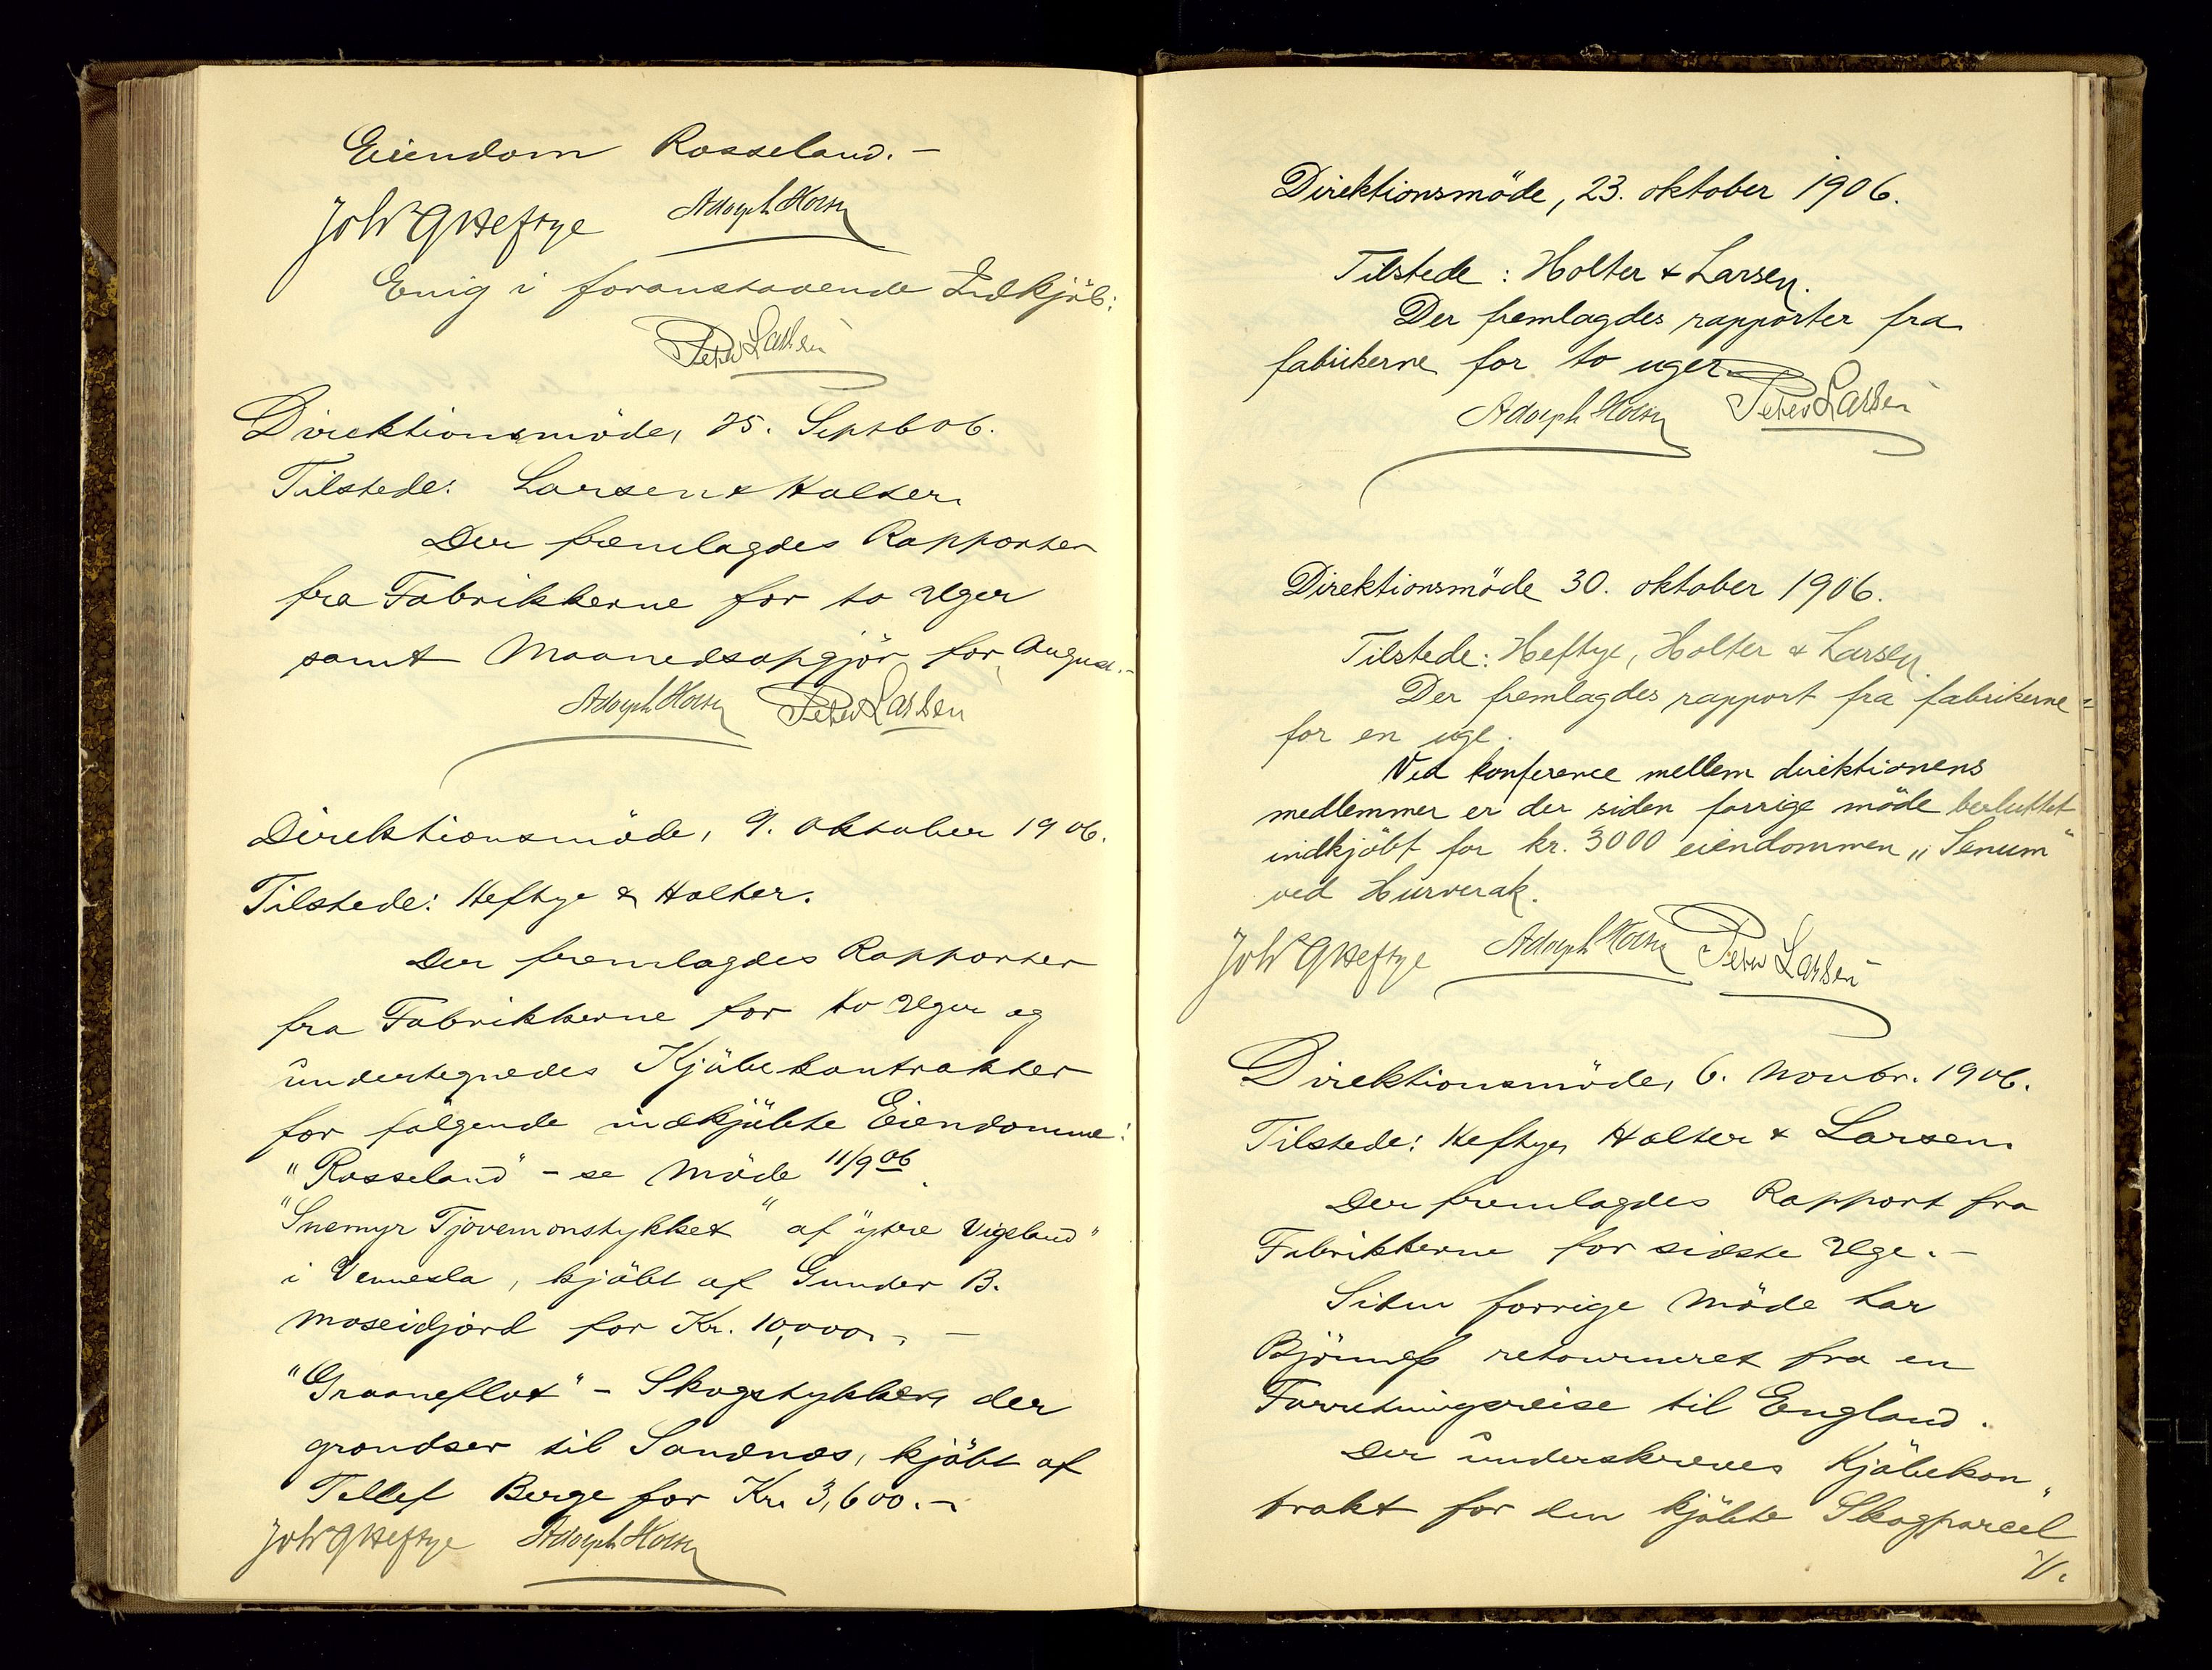 Eiendom Rosseland. –
Joh G Heftye Adolph Holter
Enig i foranstaaende Indkjöb:
Peter Larsen
Direktionsmöde, 25. Septb 06.
Tilstede: Larsen & Holter.
Der fremlagdes Rapporter
fra Fabrikkerne for to Uger
samt Maanedsopgjör for August. –
Adolph Holter Peter Larsen
Direktionsmöde, 9. Oktober 1906.
Tilstede: Heftye & Holter.
Der fremlagdes Rapporter
fra Fabrikkerne for to Uger og
undertegnedes Kjöbekontrakter
for fölgende indkjöbte Eiendomme:
"Rosseland" – se Möde 11/9 06.
"Snemyr Tjovemonstykket" af "ytre Vigeland"
i Vennesla, kjöbt af Gunder B.
Moseidjord for Kr. 10,000. – –
"Graaneflot" – Skogstykker, der
grændser til Sandnæs, kjöbt af
Tellef Berge for Kr. 3,600. –
Joh G Heftye Adolph Holter
Direktionsmöde, 23. oktober 1906.
Tilstede: Holter & Larsen.
Der fremlagdes rapporter fra
fabrikerne for to uger.
Adolph Holter Peter Larsen
Direktionsmöde 30. oktober 1906.
Tilstede: Heftye, Holter & Larsen.
Der fremlagdes rapport fra fabrikerne
for en uge.
Ved konference mellem direktionens
medlemmer er der siden forrige möde besluttet
indkjöbt for kr. 3000 eiendommen „Senum"
ved Hurverak.
Joh G Heftye Adolph Holter Peter Larsen
Direktionsmöde, 6. Novbr. 1906.
Tilstede: Heftye, Holter & Larsen.
Der fremlagdes Rapport fra
Fabrikkerne for sidste Uge. –
Siden forrige Möde har
Björnnes retourneret fra en
Forretningsreise til England.
Der underskreves Kjöbekon„
trakt for den kjöbte Skogparcel